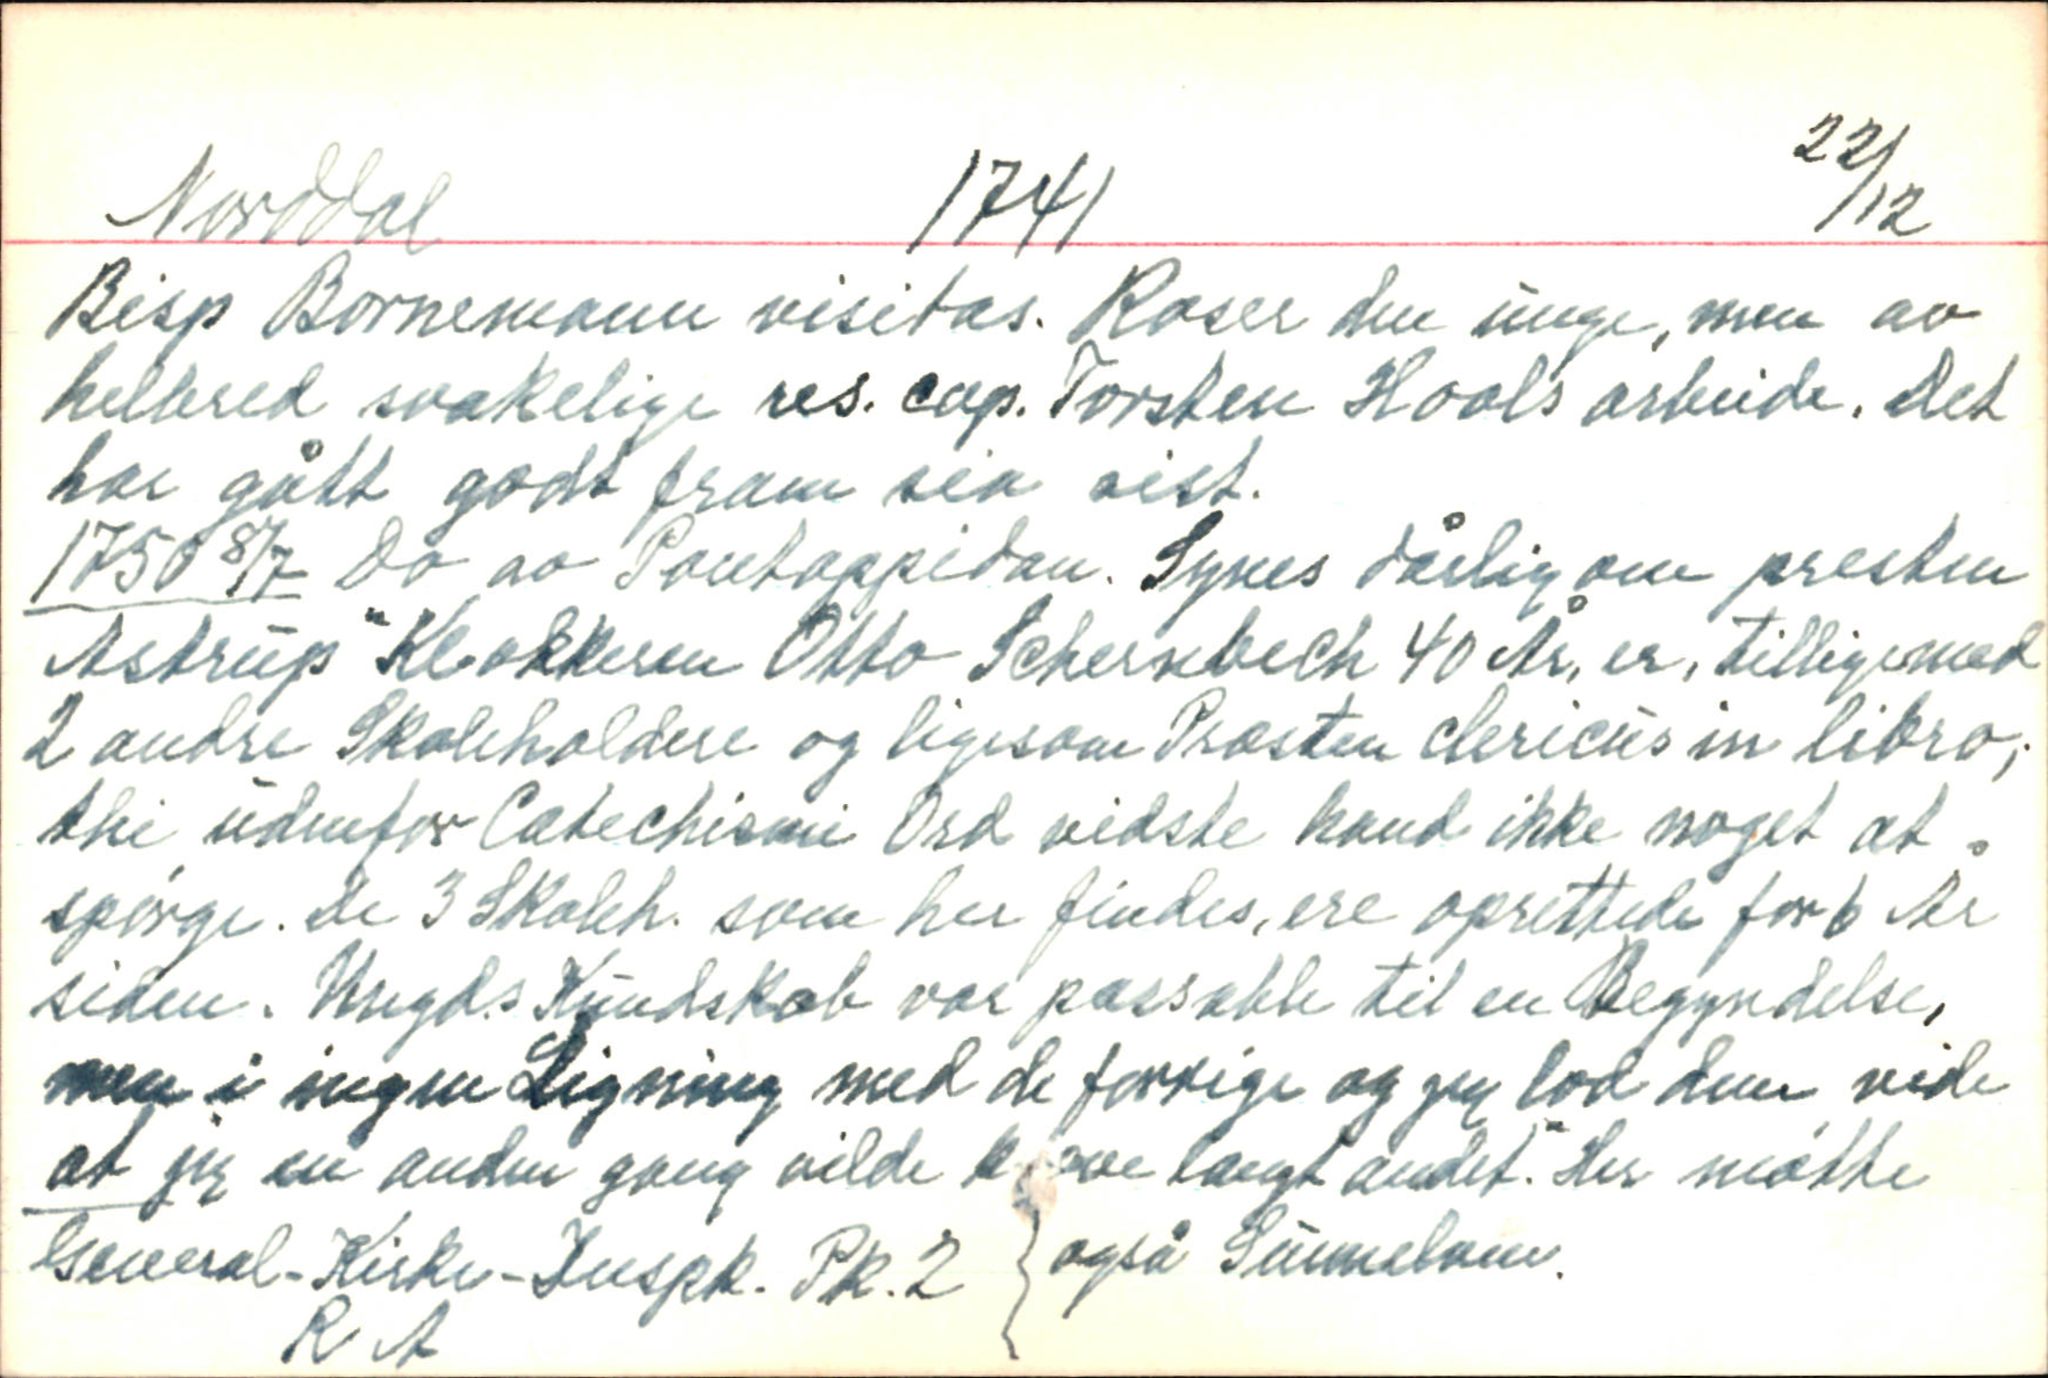 Norddal 1741 22/12
Bisp Bornemann visitas. Roser den unge, men av
helbred svakelige res. cap. Torsten Hools arbeide. Det
har gått godt fram sia sist.
1750 8/7 Do av Pontoppidan. Synes dårlig om presten
Astrup "Klokkeren Otto Schernbech 40 År, er, tilligemed
2 andre Skoleholdere og ligesom Præsten clericus in libro,
thi udenfor Catechismi Ord vidste hand ikke noget at
spørge. De 3 Skoleh. som her findes, ere oprettede for 6 År
siden. Ungd.s Kundskab var passable til en Begyndelse,
men i ingen Ligning med de forrige og jeg lod dem vide
at jeg en anden gang vilde k ve langt andet." Her møtte
General-Kirke-Inspk. Pk. 2 } også Sunnelom.
R A